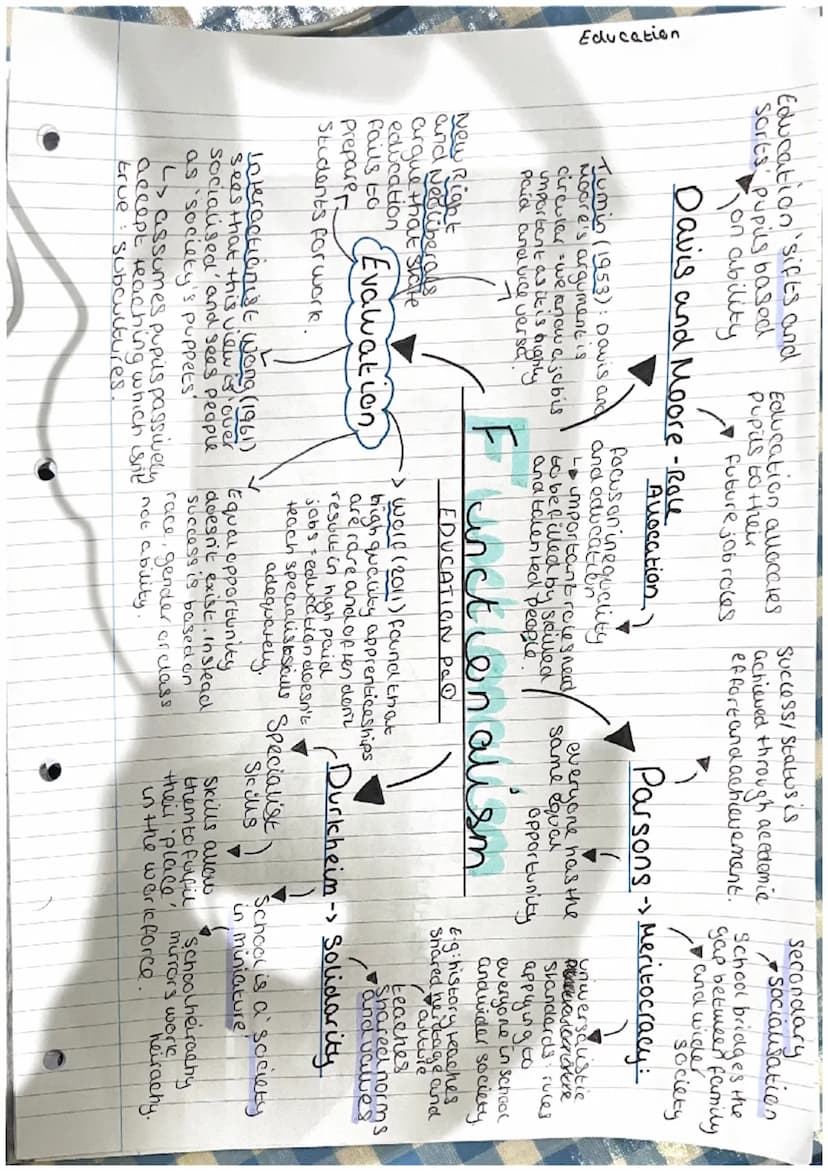 Education
Education 'sifts and
sorts' pupils based
on ability
Davis and Moore - Role
Allocation
Education allocates
pupils to their
future job roles
focus on inequality
and education
↳ important roles need
to be filled by skilled
and talented people.
Tumin (1953): Davis and
Moore's argument is
circular = we know a job is
important as it is highly
paid and vice versa.
Success/status is
achieved through acedemic
effort and achievement.
Parsons -> Meritocracy:
secondary
socialisation
School bridges the
gap between family
and wider
society
everyone has the
same equal
opportunity
universalistic
standards: rules
applying to
everyone in school
and wider society
Functionalism
EDUCATION
Evaluation
New Right
and Neoliberals
argue that state
education
fails to
prepare
students for work.
Interactionist Wrong (1961)
sees that this view is 'over
socialised' and sees people
as 'society's puppets'
↳ assumes pupils passively
accept teaching which isn't
true: subcultures.
Wolf (2011) found that
high quality apprenticeships
are rare and often don't
result in high paid
jobs = education doesn't
teach specialist skills
adequately.
Equal opportunity
doesn't exist. instead
success is based on
race, gender or class
not ability.
Durkheim -> Solidarity
Specialist
Skills
skills allow
them to fulfil
their 'place'
in the workforce.
School is a 'society
in miniature'
school heirachy
mirrors work
heirachy.
teaches
shared norms
and values
E.g: history teaches
shared heritage and
culture